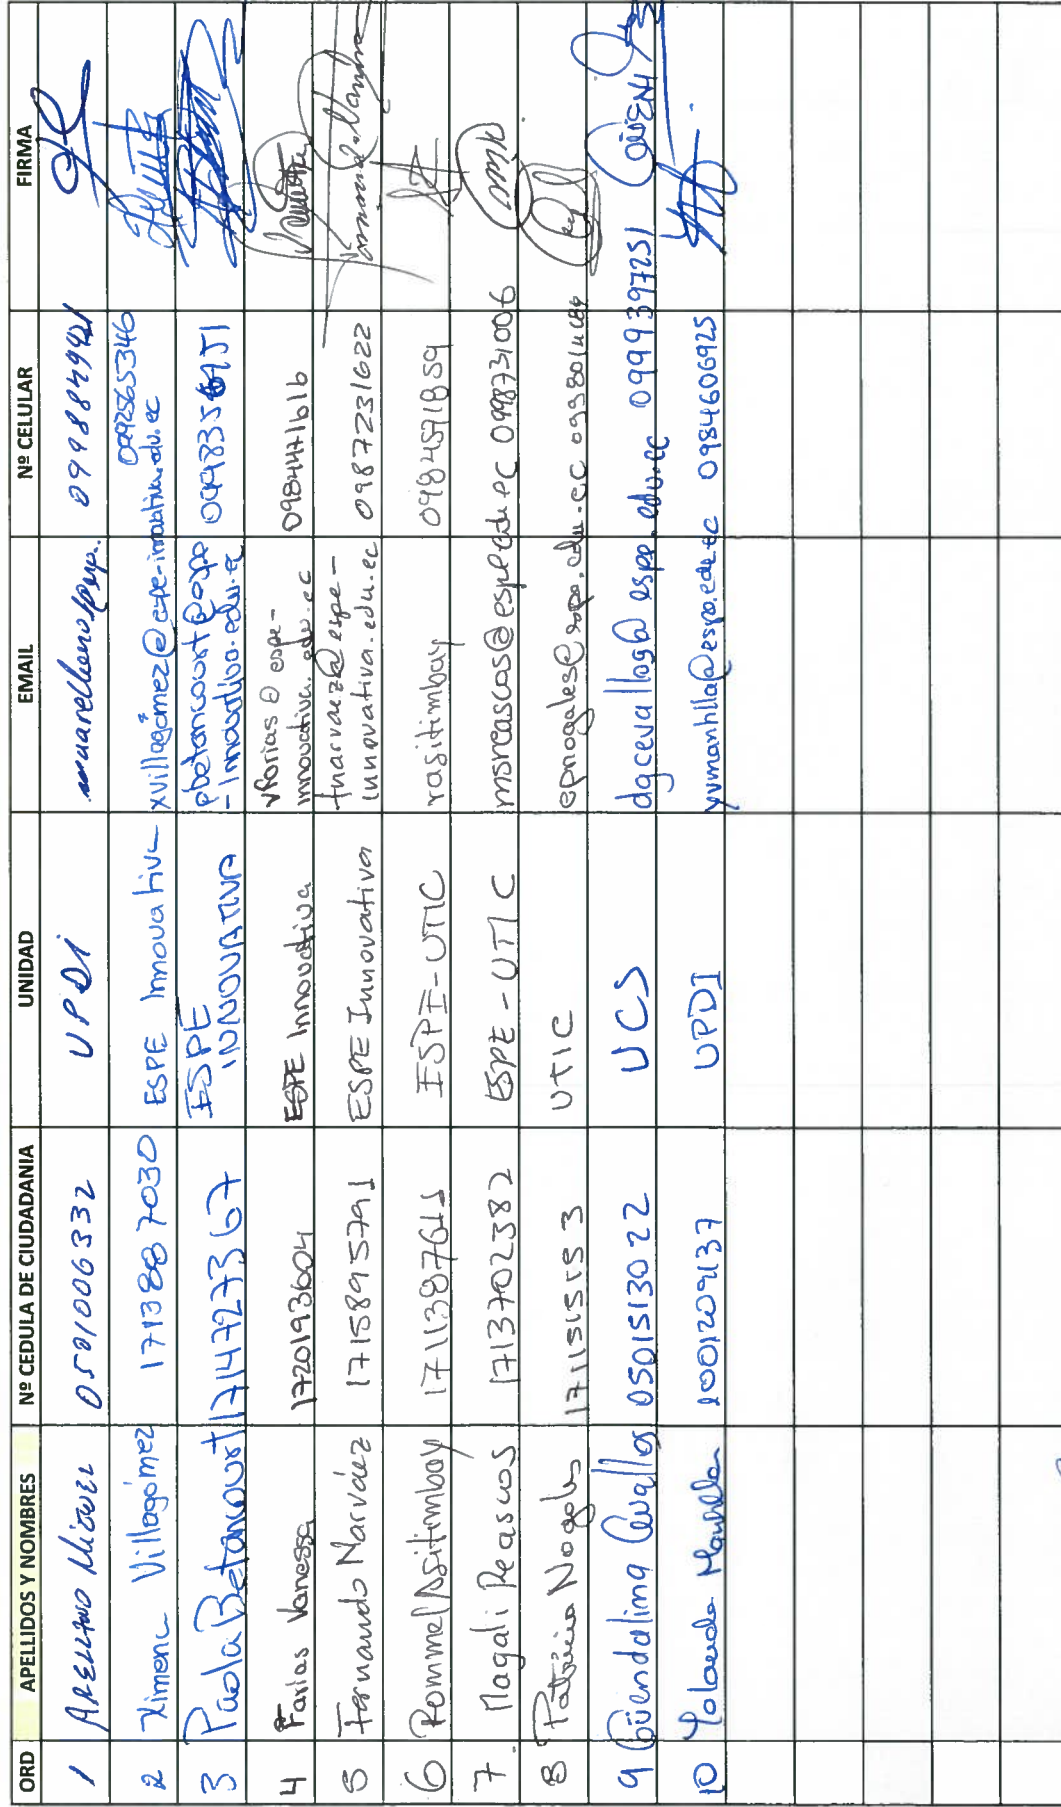 ORD APELLIDOS Y NOMBRES Nº CEDULA DE CIUDADANIA UNIDAD EMAIL Nº CELULAR FIRMA
1 ARELLANO MIGUEL 0501006332 UPDI
2 Ximena Villagómez 1713887030 ESPE Innovativa xvillagomez@espe-innovativa.edu.ec 0992565346
3 Paola Betancourt 1714727367 ESPE INNOVATIVA pbetancourt@espe
-innovativa.edu.ec
4 Farias Vanessa 1720193604 ESPE Innovativa vfarias@espe-
innovativa.edu.ec 0984471616
5 Fernando Narváez 1715895791 ESPE Innovativa fnarvaez@espe-
innovativa.edu.ec 0987231622
6 Rommel Asitimbay 1711387611 ESPE-UTIC rasitimbay 0984571859
7. Magali Reascos 1713702382 ESPE-UTIC msreascos@espe.edu.ec 0998731006
8 Patricia Nogales 1711515153 UTIC epnogales@espe.edu.ec
9 Güendalina Cevallos 0501513022 UCS dgcevallos@espe.edu.ec 0999397251
10 Yolanda Mantilla 1001209137 UPDI yvmantilla@espe.edu.ec 0984606925